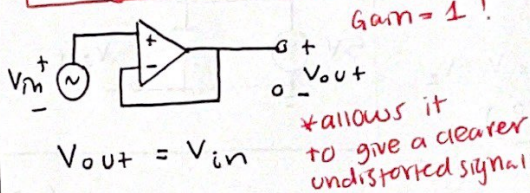 Gain = 1 !
+
Vin
+
-
~
+
-
+
Vout
-
Vout = Vin
*allows it
to give a clearer
undistorted signal